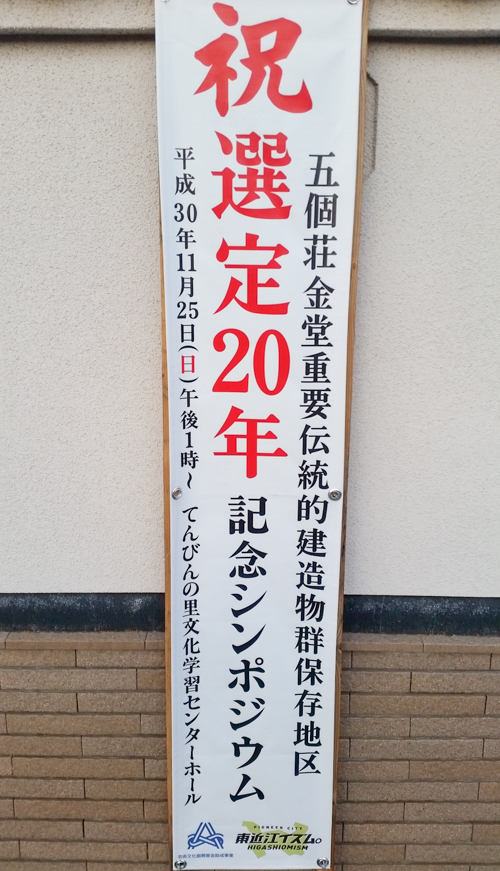 祝
五個荘金堂重要伝統的建造物群保存地区
選定20年
記念シンポジウム
平成30年11月25日(日)午後1時～
てんびんの里文化学習センターホール
PIONEER CITY
東近江イズム。
HIGASHIOMISM